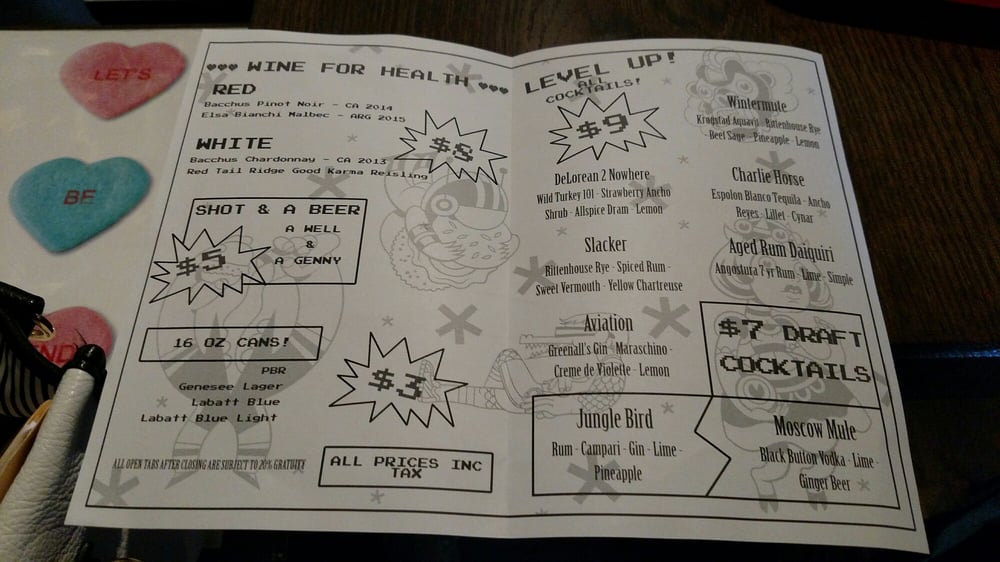 LET'S
BE
♥♥♥ WINE FOR HEALTH ♥♥♥
RED
Bacchus Pinot Noir - CA 2014
Elsa Bianchi Malbec - ARG 2015
WHITE
Bacchus Chardonnay - CA 2013
Red Tail Ridge Good Karma Reisling
$8
SHOT & A BEER
A WELL
&
A GENNY
$5
16 OZ CANS!
PBR
Genesee Lager
Labatt Blue
Labatt Blue Light
$3
ALL OPEN TABS AFTER CLOSING ARE SUBJECT TO 20% GRATUITY
ALL PRICES INC
TAX
LEVEL UP!
ALL
COCKTAILS!
$9
DeLorean 2 Nowhere
Wild Turkey 101 - Strawberry Ancho
Shrub - Allspice Dram - Lemon
Slacker
Rittenhouse Rye - Spiced Rum -
Sweet Vermouth - Yellow Chartreuse
Aviation
Greenall's Gin - Maraschino -
Creme de Violette - Lemon
Wintermute
Krogstad Aquavit - Rittenhouse Rye
- Beel Sage - Pineapple - Lemon
Charlie Horse
Espolon Blanco Tequila - Ancho
Reyes - Lillet - Cynar
Aged Rum Daiquiri
Angostura 7 yr Rum - Lime - Simple
$7 DRAFT
COCKTAILS
Jungle Bird
Rum - Campari - Gin - Lime -
Pineapple
Moscow Mule
Black Button Vodka - Lime -
Ginger Beer